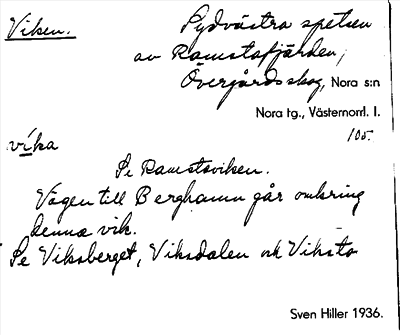 Viken.
Sydvästra spetsen
av Ramstafjärden,
Övergårdsskog, Nora s:n
Nora tg., Västernorrl. l.
105.
vika
Se Ramstaviken.
Vägen till Berghamn går omkring
denna vik.
Se Viksberget, Viksdalen och Viksta
Sven Hiller 1936.